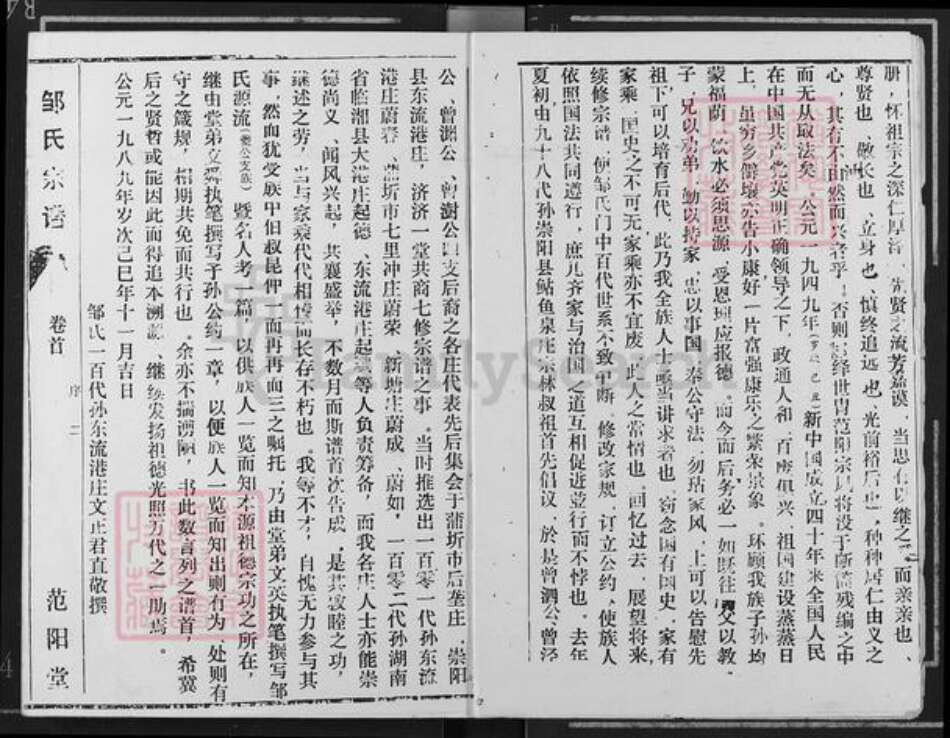 胼，怀祖宗之深仁厚泽，先贤之流芳嘉谟，当思有以继之。而亲亲也
尊贤也、敬长也、立身也、慎终追远也、光前裕后也，种种居仁由义之
心，其有不由然而兴者乎！否则
绎世胄范阳宗风将没于断简残编之中
而无从取法矣。公元一九四九年
新中国成立四十年来全国人民
在中国共产党英明正确领导之下，政通人和，百废俱兴、祖国建设蒸蒸日
上，虽穷乡僻壤亦告小康好一片富强康乐之繁荣景象。环顾我族子孙均
蒙福荫，饮水必须思源，受恩理应报德。而今而后务必一如既往，父以教
子，兄以勉弟，勤以持家，忠以事国，奉公守法，勿玷家风，上可以告慰先
祖下可以培育后代，此乃我全族人士坚当讲求者也，窃念国有国史，家有
家乘，国史之不可无家乘亦不宜废，此人之常情也。回忆过去，展望将来
续修宗谱，使邹氏门中百代世系不致中断，修改家规，订立公约，使族人
依照国法共同遵行，庶几齐家与治国之道互相促进並行而不悖也。去年
夏初，由九十八代孙崇阳县鲇鱼泉庄宗林叔祖首先倡议，於是曾泗公、曾泾
公、曾渊公、曾澍公四支后裔之各庄代表先后集会于蒲圻市后垄庄，崇阳
县东流港庄，济济一堂共商七修宗谱之事。当时推选出一百零一代孙东流
港庄蔚春、蒲圻市七里冲庄蔚荣、新塘庄蔚成、蔚如，一百零二代孙湖南
省临湘县大港庄起德、东流港庄起
等人负责筹备，而我各庄人士亦能崇
德尚义，闻风兴起，共襄盛举，不数月而斯谱首次告成，是其敦睦之功，
继述之劳，当与家乘代代相传而长存不朽也。我等不才，自愧无力参与其
事，然而犹受族中伯叔昆仲一而再再而三之嘱托，乃由堂弟文英执笔撰写邹
氏源流
暨名人考一篇，以供族人一览而知木源祖德宗功之所在，
继由堂弟文舜执笔撰写子孙公约一章，以便族人一览而知出则有为、处则有
守之箴规，相期共免而共行也。余亦不揣谫陋，书此数言列之谱首，希冀
后之贤哲或能因此而得追本溯源、继续发扬祖德光照万代之一助焉。
公元一九八九年岁次己巳年十一月吉日
邹氏一百代孙东流港庄文正君直敬撰
邹氏宗谱
卷首
序
二
范阳堂
FamilySearch